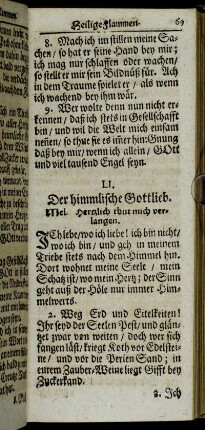 Heilige Flammen. 69
8. Mach ich im stillen meine Sa-
chen / so hat er seine Hand bey mir;
ich mag nur schlaffen oder wachen/
so stellt er mir sein Bildnüß für. Ach
in dem Traume spielet er / als wenn
ich wachend bey ihm wär.
9. Wer wolte denn nun nicht er-
kennen / daß ich stets in Gesellschafft
bin / und wil die Welt mich einsam
nennen / so thut sie es im̃er hin: Gnung
daß bey mir / wenn ich allein / GOtt
und viel tausend Engel seyn.
LI.
Der himmlische Gottlieb.
Mel. Hertzlich thut mich ver-
langen.
ICh lebe / wo ich liebe! ich bin nicht/
wo ich bin / und geh in meinem
Triebe stets nach dem Himmel hin.
Dort wohnet meine Seele / mein
Schatz ist / wo mein Hertz; der Sinn
geht auß der Höle nur immer Him-
melwerts.
2. Weg Erd und Eitelkeiten!
Ihr seyd der Seelen Pest / und glän-
tzet zwar von weiten / doch wer sich
fangen läst / kriegt Koth vor Edelstei-
ne / und vor die Perlen Sand; in
eurem Zauber-Weine liegt Gifft bey
Zuckerkand.
3. Ich